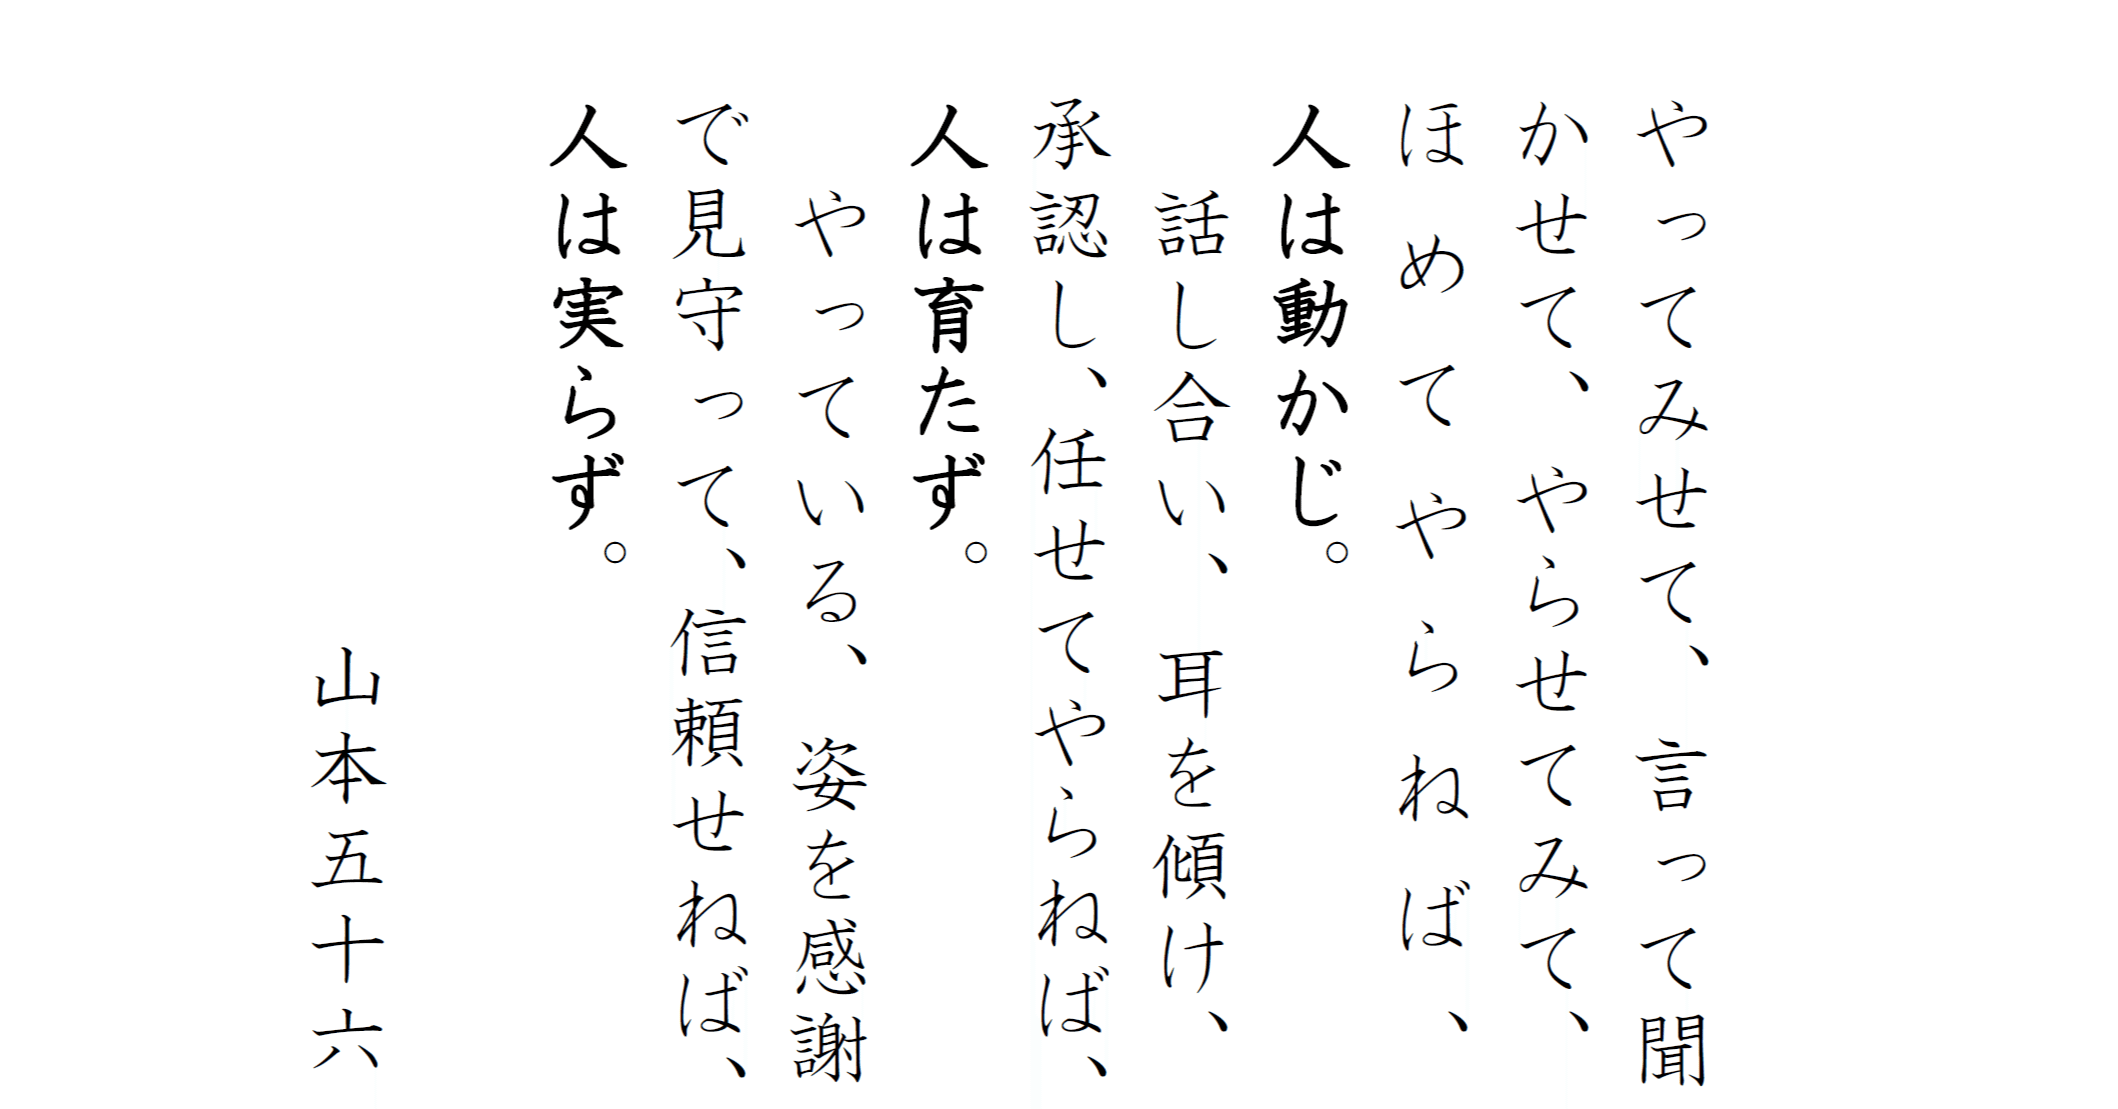 やってみせて、言って聞
かせて、やらせてみて、
ほめてやらねば、
人は動かじ。
話し合い、耳を傾け、
承認し、任せてやらねば、
人は育たず。
やっている、姿を感謝
で見守って、信頼せねば、
人は実らず。
山本五十六